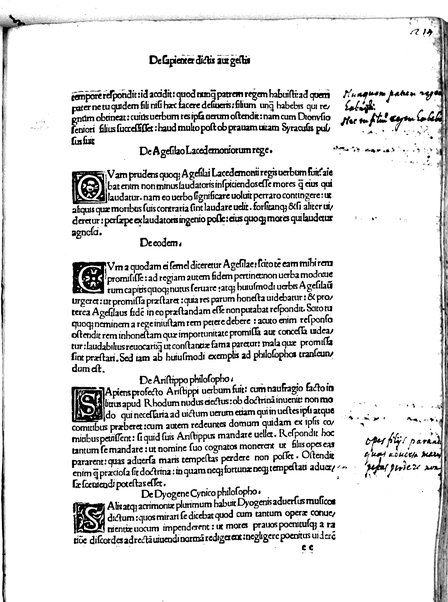 214
De sapienter dictis aut gestis
tempore respondit: id accidit: quod nunq̃ patrem regem habuisti: ad quem
pater ne tu quidem fili nisi hæc facere desueris: filium unq̃ habebis qui re-
gnum obtineat: cuius uerbum res ipsa uerum ostendit: nam cum Dionysio
seniori filius successisset: haud multo post ob prauam uitam Syracusis pul
sus fuit
Nunquam patrem regem
habuisti
De Agesilao Lacedemoniorum rege.
QVam prudens quoq; Agesilai Lacedemonii regis uerbum fuit: aie
bat enim non minus laudatoris inspiciendos esse mores q̃ eius qui
laudatur. nam eo uerbo significare uoluit perraro contingere: ut
aliquis quæ moribus suis contraria sint laudare uelit. forsitanq; & si aliter ui-
deretur: persæpe ex laudatoris ingenio posse: eius quoq; mores qui laudetur
agnosci.
De eodem.
CVm a quodam ei semel diceretur Agesilae; scito te eam mihi rem
promisisse: ad regiam autem fidem pertinere non uerba modo ue
rum capitis quoq; nutus seruare: atq; ubi huiusmodi uerbis Agesilaū
urgeret: ut promissa præstaret: quia res parum honesta uidebatur: & pro
terea Agesilaus fidē in eo præstandam esse non putabat respondit. Scito tu
quoq; neminem a rege iniustam rem petere debere: acuto enim responso
ostendit rem inhonestam quæ importunitate promissa aut concessa uidea
tur: laudabilius reuocari q̃ ut constantiæ fama paretur: mala quæ promissa
sint præstari. Sed iam ab huiusmodi exemplis ad philosophos transeun
dum est.
De Aristippo philosopho.
SApiens profecto Aristippi uerbum fuit: cum naufragio facto in
litus apud Rhodum nudus eiectus: ob doctrinā inuenit: non mo
do qui necessaria ad uictum uerum etiam qui in uestes ipsi atque
comitibus præberet: cum autem redeuntes domum quidam ex ipsis co
mitibus petiissent: si quid suis Aristippus mandare uellet. Respondit hoc
tantum se mandare: ut nomine suo cognatos moneret ut filiis opes eas
pararent: quas aduersa maris tempestas perdere non posset. Ostendit
enim q̃ præciosa sit doctrina: in quam neq; fortunæ neq; tempestati aduer
sæ sæuiendi potestas esset.
opes filijs parandas
quas nouum maris
De Dyogene Cynico philosopho.
SAlis atq; acrimoniæ plurimum habuit Dyogenis aduersus musicos
dictum: quos mirari se dicebat quod cum tantum operæ conue
nientiæ uocum impenderent: ut mores prauos poenitusq; a ra
tiōe discordes ad rectā uiuendi normā redigerent: negligere poenitus uiderē
e e